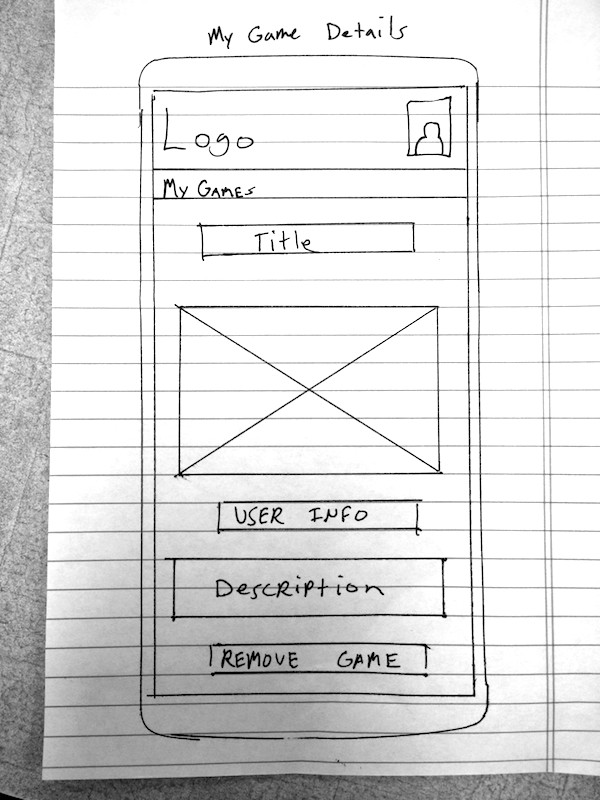 My Game Details
Logo
My Games
Title
USER INFO
Description
REMOVE GAME